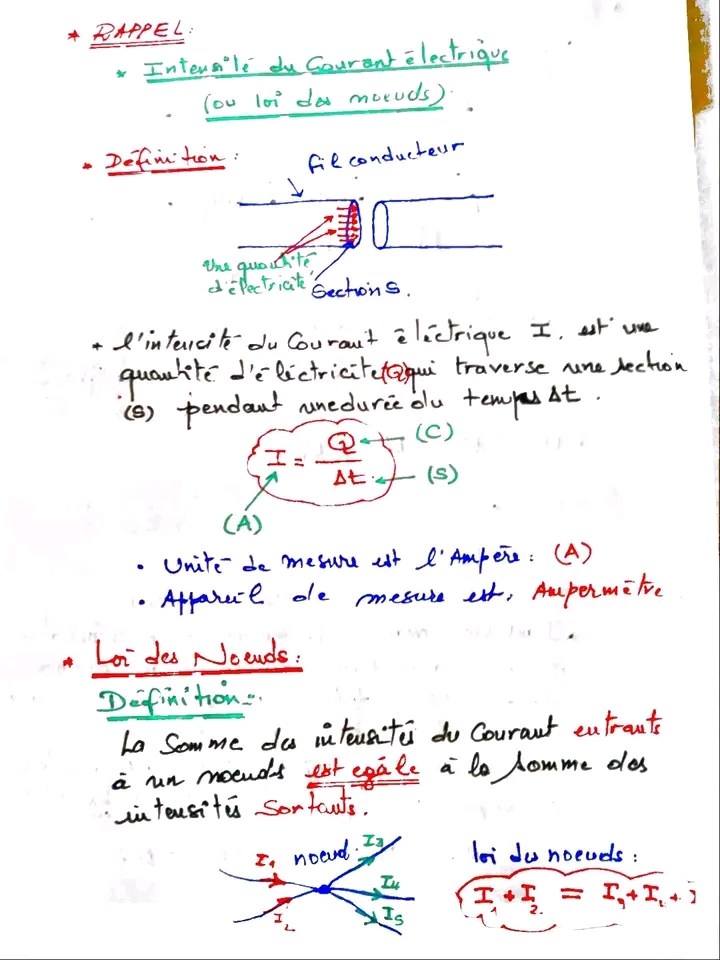 * RAPPEL:
* Intensité du Courant électrique
(ou loi des noeuds).
* Définition:
fil conducteur
Une quantité
d'électricité
Section S.
+ l'intencité du Courant éléctrique I. est une
quantité d'éléctricité (Q) qui traverse une section
(S) pendant une durée du temps Δt.
I = Q / Δt
(C)
(S)
(A)
• Unité de mesure est l'Ampère: (A)
• Appareil de mesure est, Ampermètre
* Loi des Noeuds:
Définition:
La Somme des intensités du Courant entrants
à un noeuds est egâle à la somme des
intensités Sortants.
I1 noeud. I3
I4
I2 I5
loi des noeuds:
I1 + I2 =